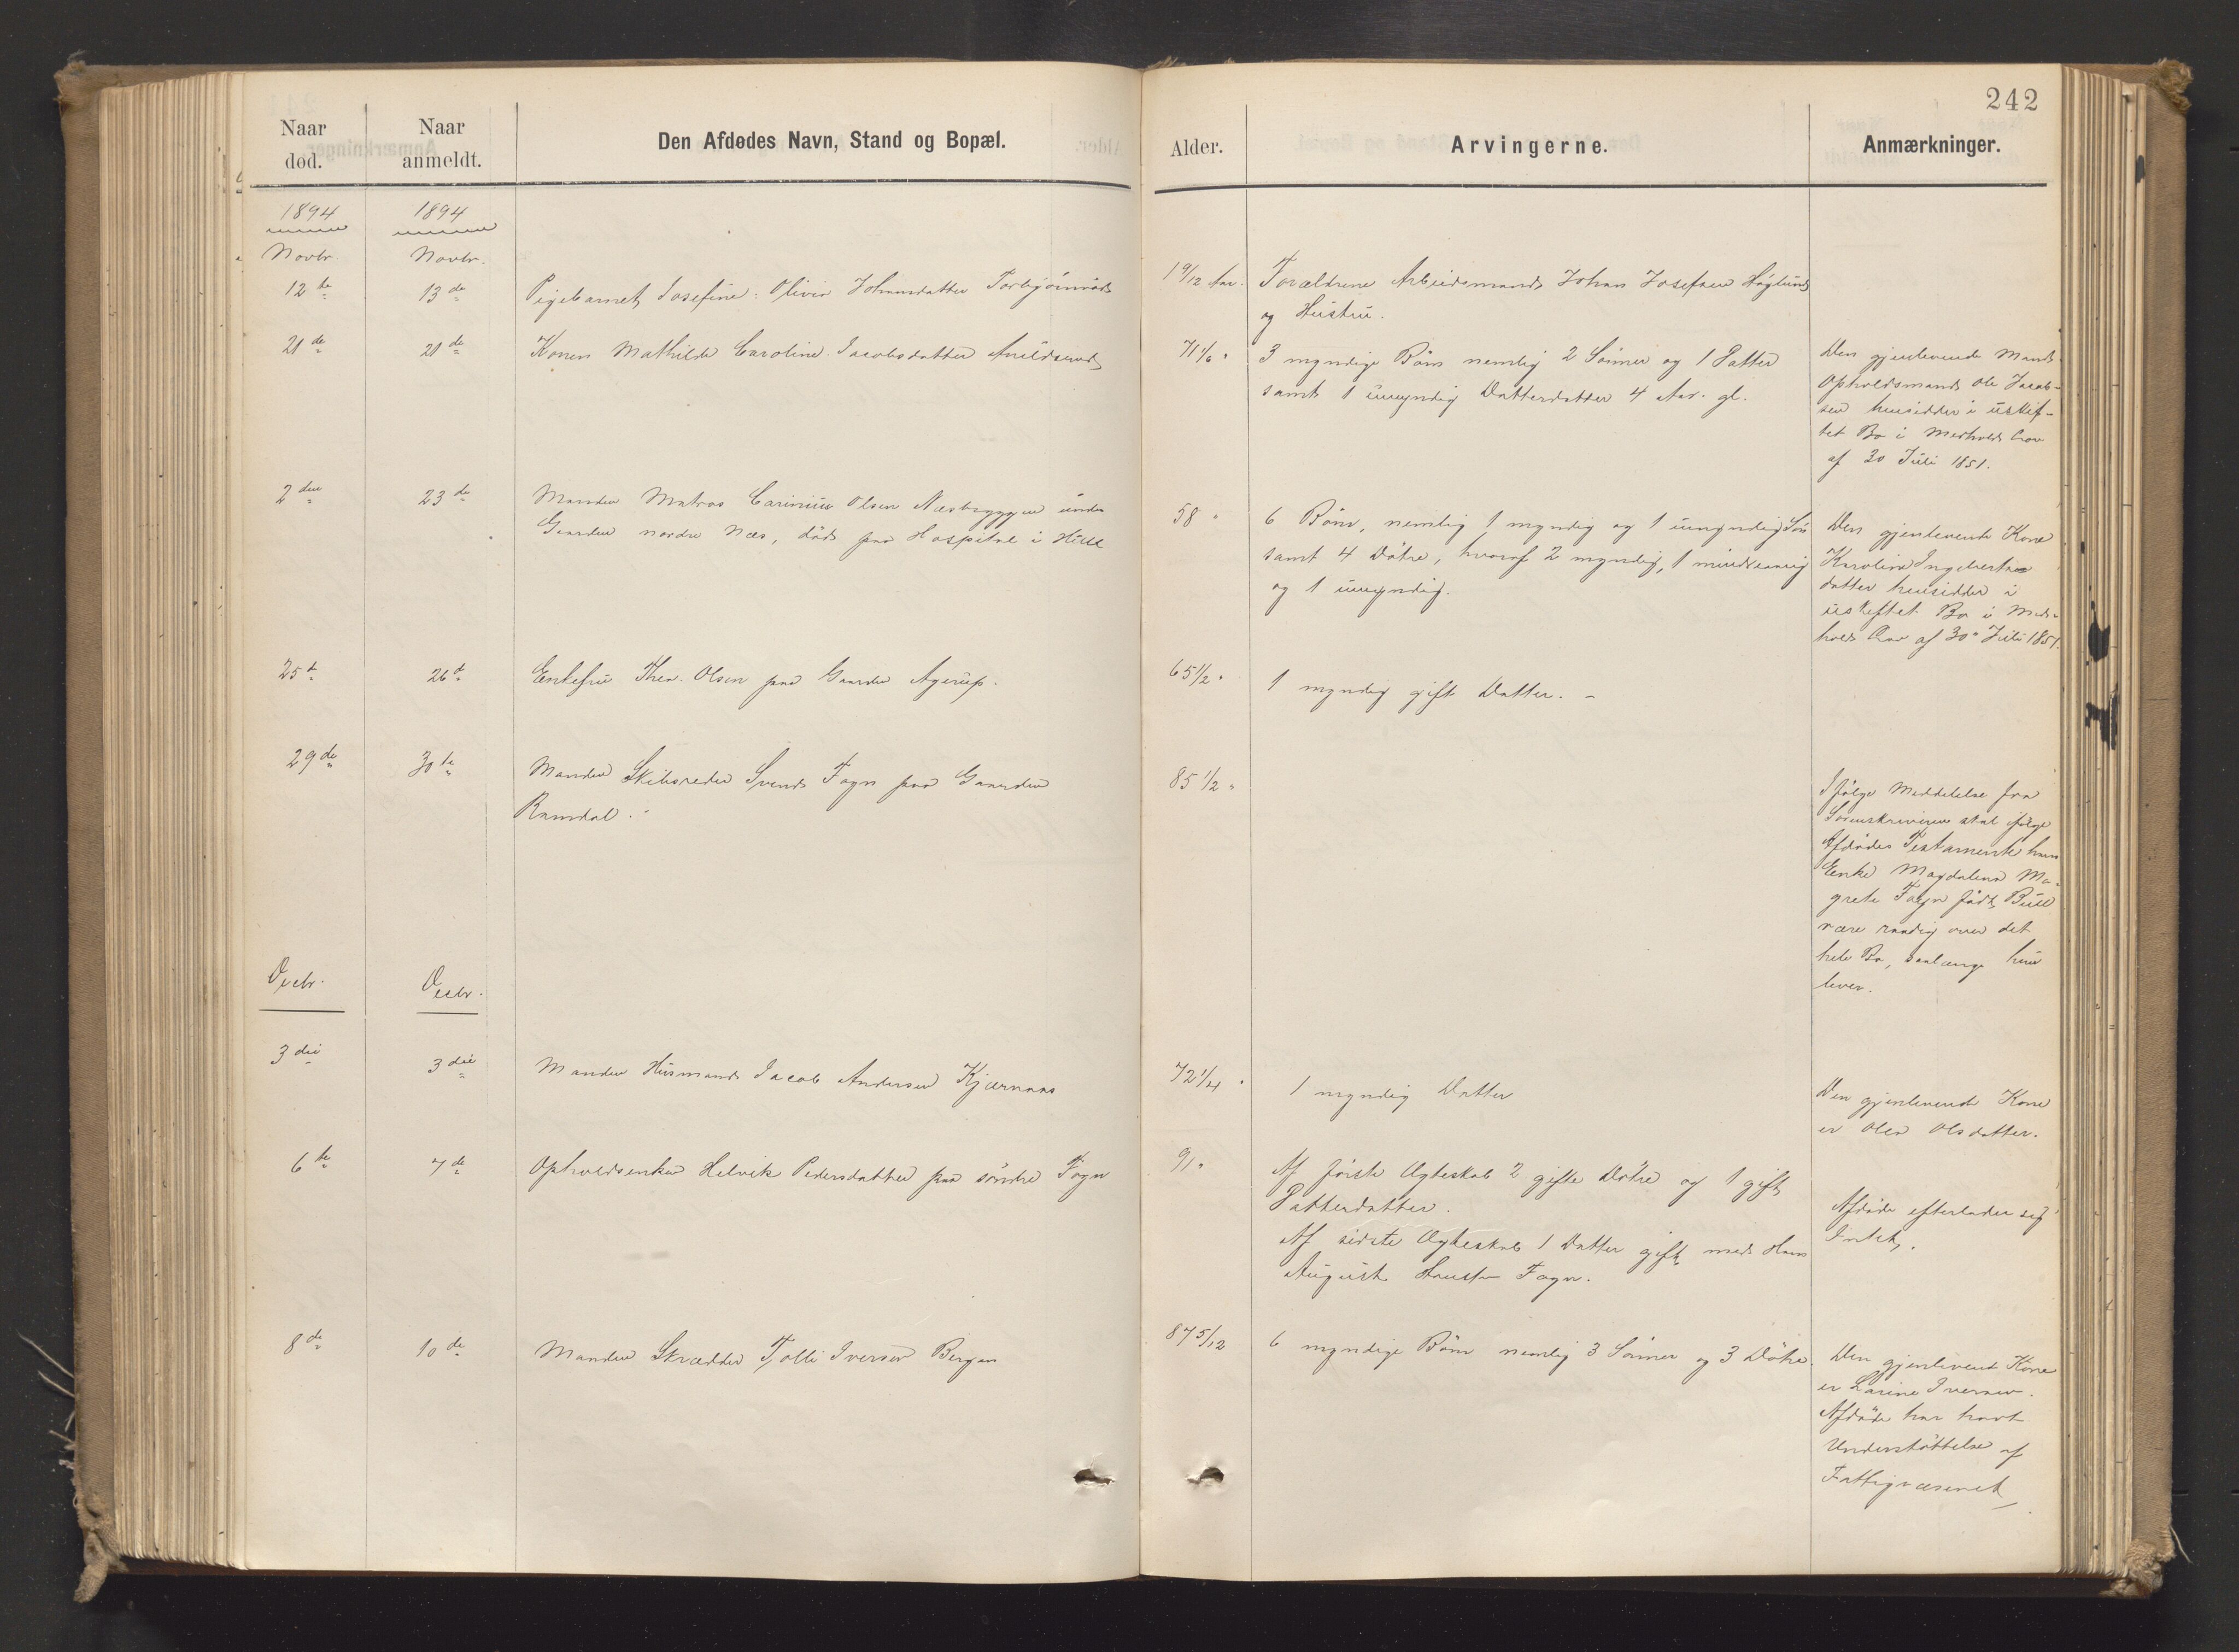 242
Naar død.
Naar anmeldt.
Den Afdødes Navn, Stand og Bopæl.
Alder.
Arvingerne.
Anmærkninger.
1894
1894
Novbr.
Novbr.
12te
13de
Pigebarnet Josefine Olivia Johansdatter
1 9/12 Aar.
Forældrene Arbeidsmand Johan Josefsen Höglund
og Hustru.
21de
21de
Konen Mathilde Caroline Jacobsdatter
71 1/6 "
3 myndige Börn nemlig 2 Sönner og 1 Datter
samt 1 umyndig Datterdatter 4 Aar. gl.
Den gjenlevende Mand
Opholdsmand Ole Jacob-
sen hensidder i uskif-
tet Bo i Medhold Lov
af 30 Juli 1851.
2den
23de
Manden Matros Carinius Olsen Næsbryggen under
Gaarden nordre Næs, död paa Hospital i Hull
58 "
6 Börn, nemlig 1 myndig og 1 umyndig Sön
samt 4 Dötre, hvoraf 2 myndig, 1 mindreaarig
og 1 umyndig.
Den gjenlevende Kone
Karoline Ingebrets
datter hensidder i
uskiftet Bo i Med-
hold Lov af 30 Juli 1851.
25de
26de
Enkefru Thea Olsen paa Gaarden Agerup.
65 1/2 "
1 myndig gift Datter. -
29de
30te
Manden Skibsreder Svend Foyn paa Gaarden
Ramdal.
85 1/2 "
Ifölge Meddelelse fra
Sorenskriveren skal ifölge
Afdödes Testamente hans
Enke Magdalena Ma-
grete Foyn född Bull
være raadig over det
hele Bo, saalænge hun
lever.
Decbr.
Decbr.
3die
3die
Manden Husmand Jacob Andersen Kjærnaas
72 1/4 "
1 myndig Datter
Den gjenlevende Kone
er Olea Olsdatter.
6te
7de
Opholdsenken Helvik Pedersdatter paa söndre Foyn
91 "
Af förste Ægteskab 2 gifte Dötre og 1 gift
Datterdatter.
Af sidste Ægteskab 1 Datter gift med Hans
August Foyn.
Afdöde efterlader sig
Intet.
8de
10de
Manden Skrædder Tjolli Iversen Bergan
87 5/12
6 myndige Börn nemlig 3 Sönner og 3 Dötre.
Den gjenlevende Kone
er Larine Iversen.
Afdöde har havt
Understöttelse af
Fattigvæsenet